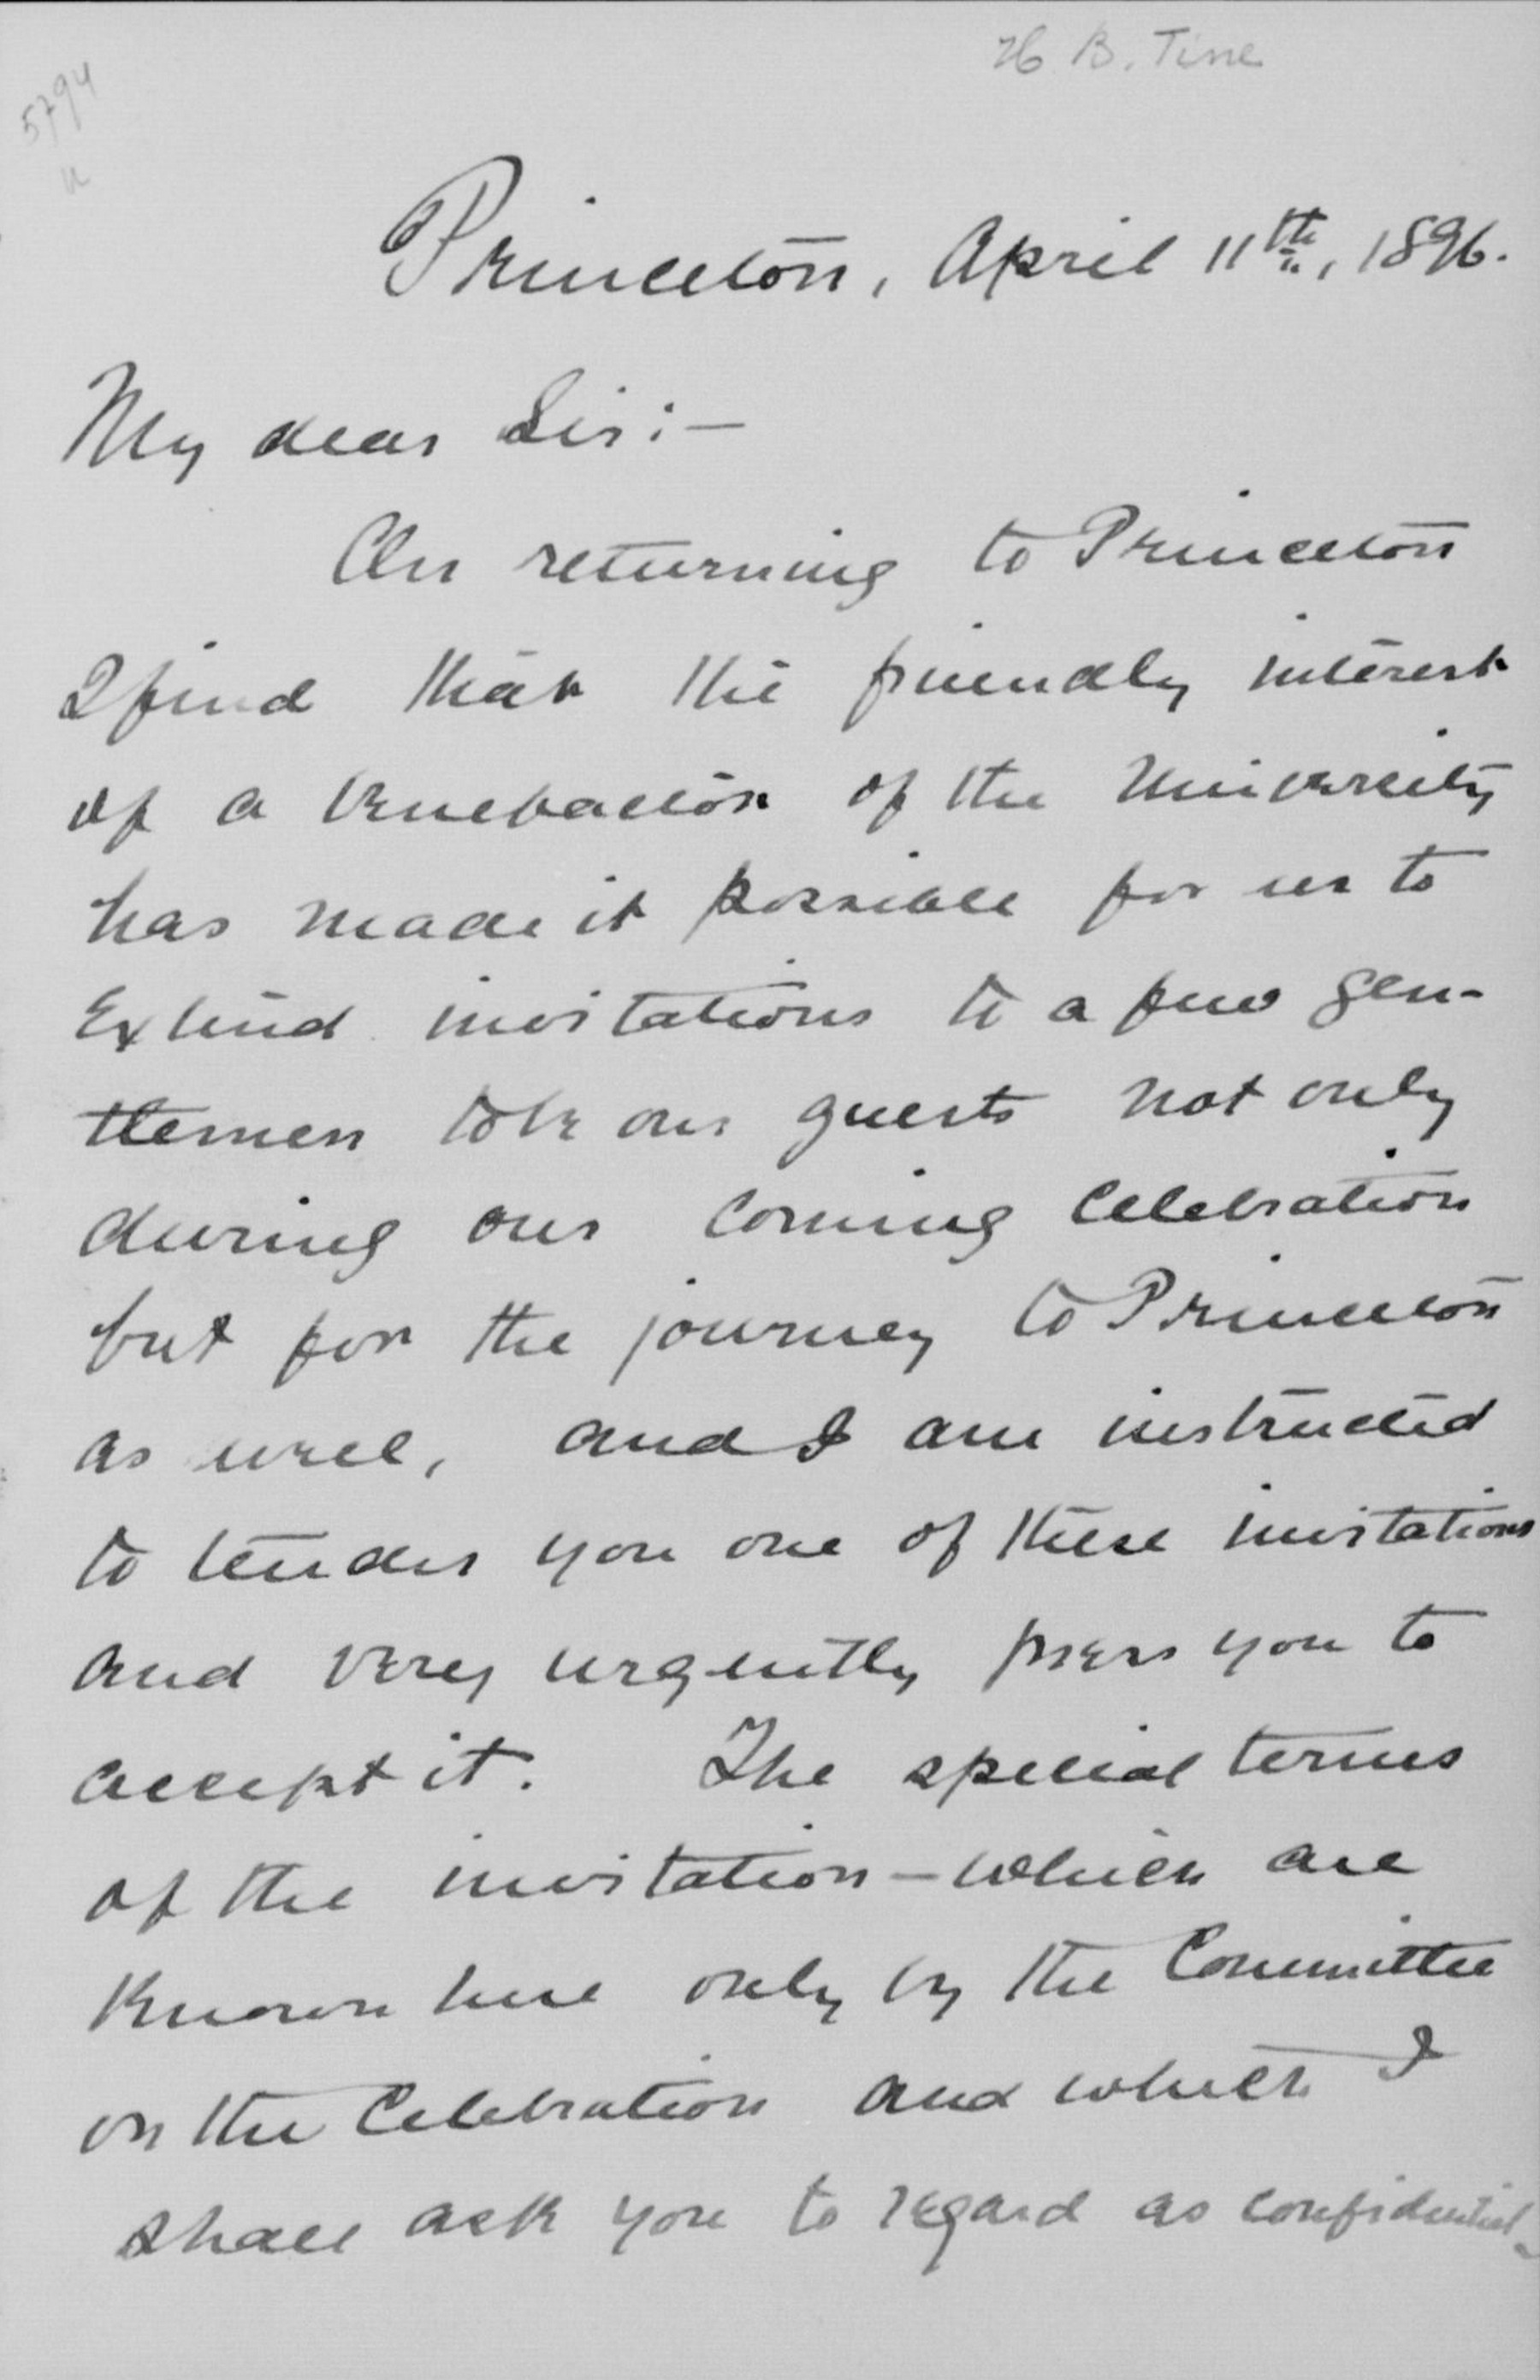 H. B. Fine
5794
Princeton, April 11th, 1896.
My dear Sir:—
On returning to Princeton
I find that the friendly interest
of a benefactor of the University
has made it possible for us to
extend invitations to a few gen-
tlemen to be our guests not only
during our coming Celebration
but for the journey to Princeton
as well, and I am instructed
to tender you one of these invitations
and very urgently press you to
accept it. The special terms
of the invitation – which are
known here only by the Committee
on the Celebration and which I
shall ask you to regard as confidential